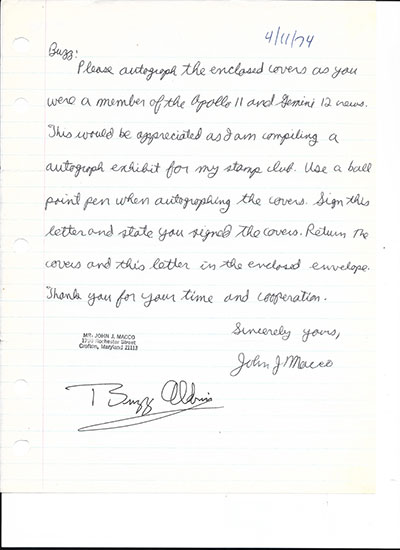 4/11/74
Buzz:
Please autograph the enclosed covers as you
were a member of the Apollo 11 and Gemini 12 news.
This would be appreciated as I am compiling a
autograph exhibit for my stamp club. Use a ball
point pen when autographing the covers. Sign this
letter and state you signed the covers. Return the
covers and this letter in the enclosed envelope.
Thank you for your time and cooperation.
Sincerely yours,
John J Macco
MR. JOHN J. MACCO
Rochester Street
Crofton, Maryland 21113
Buzz Aldrin